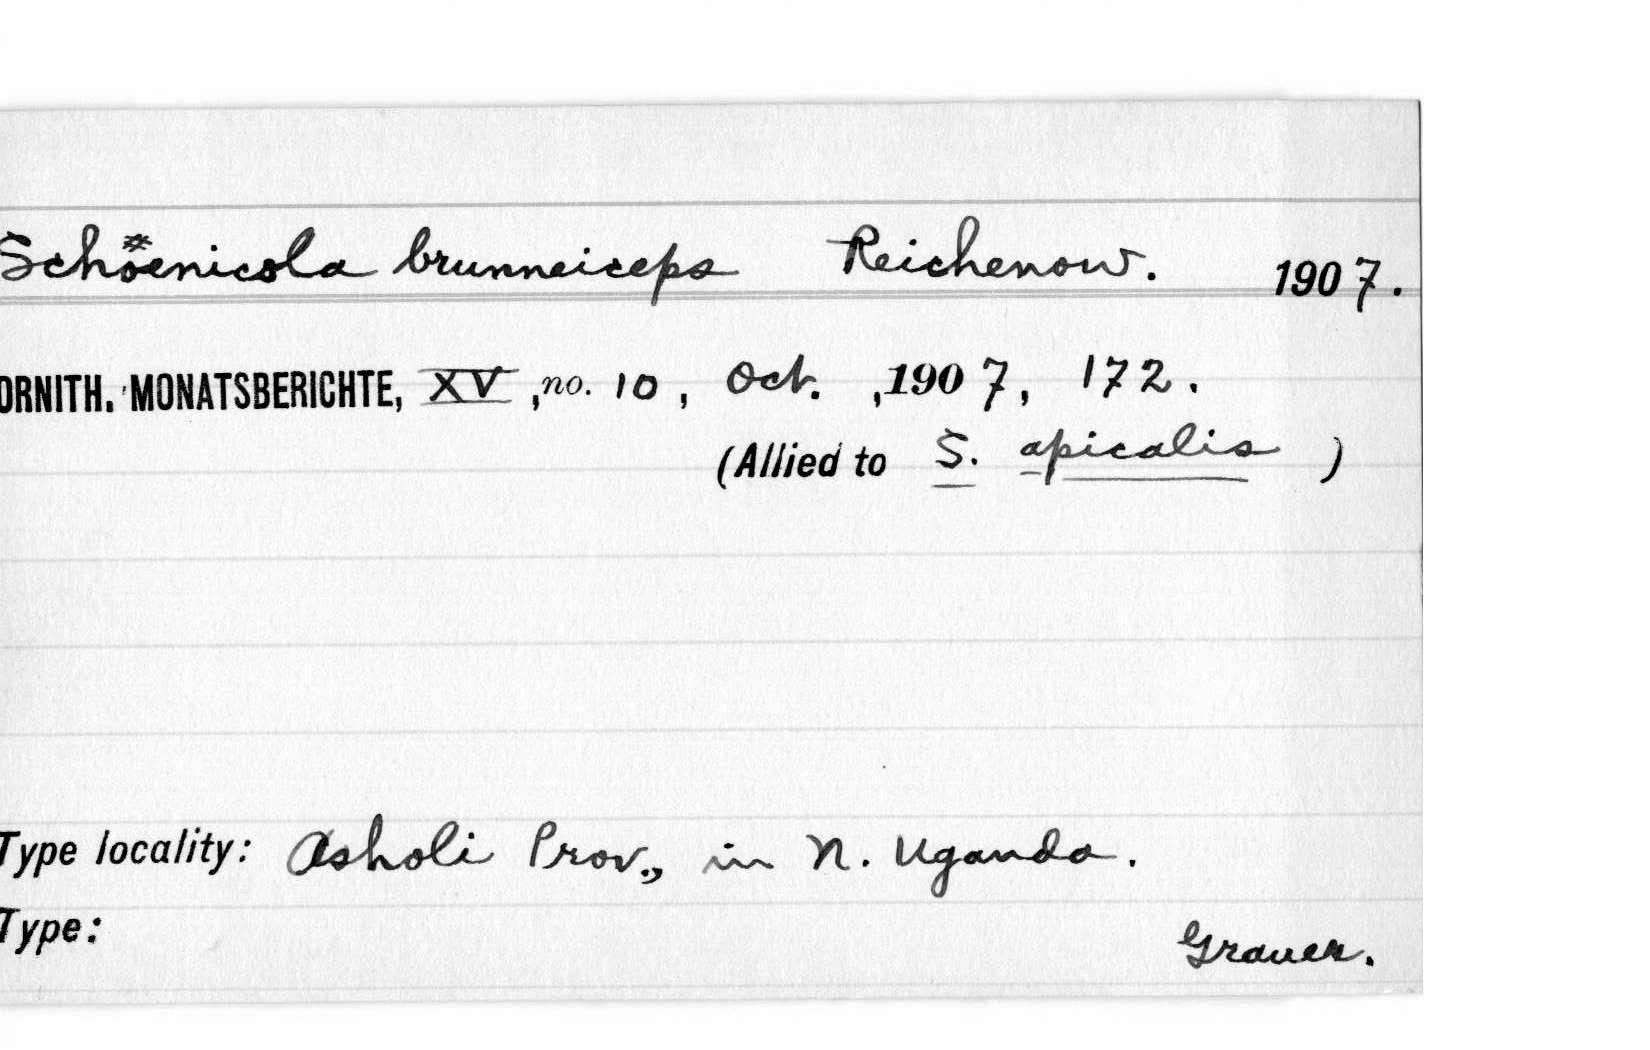 Schöenicola brunneiceps Reichenow. 1907.
ORNITH. MONATSBERICHTE, XV, no. 10, Oct., 1907, 172.
(Allied to S. apicalis)
Type locality: Asholi Prov., in N. Uganda.
Type:
Grauer.